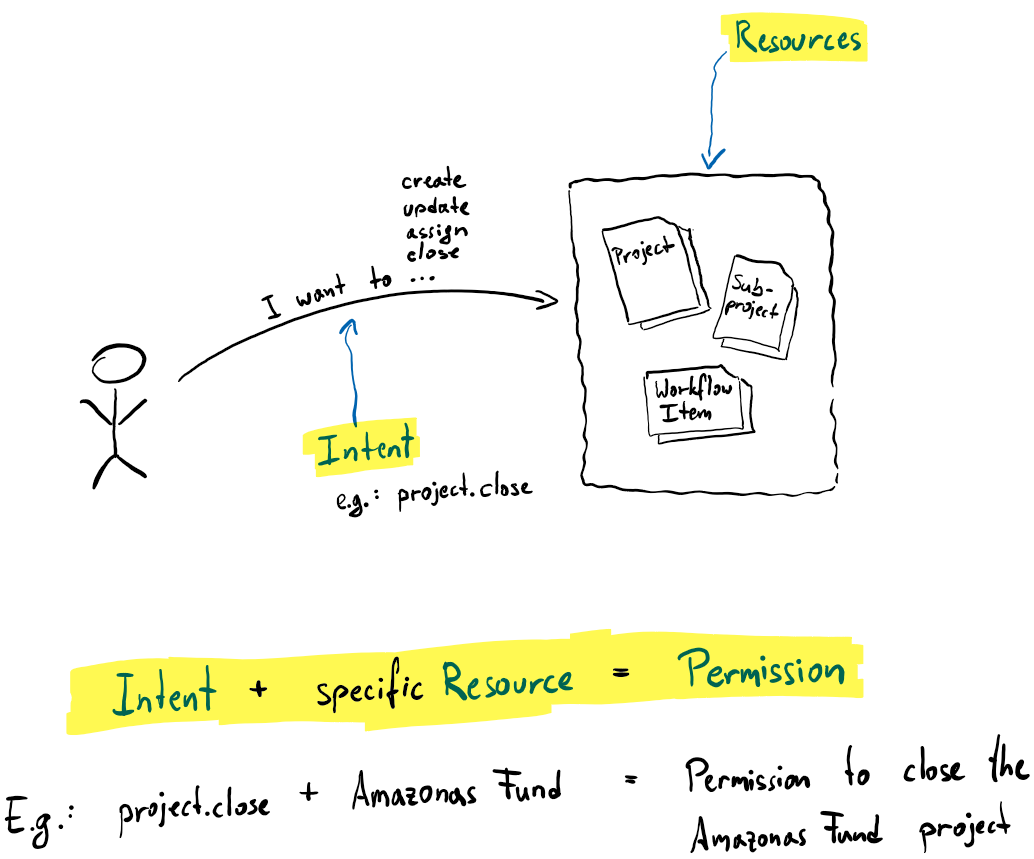 Resources
create
update
assign
close
I want to ...
Project
Sub-
project
Workflow
Item
Intent
e.g.: project.close
Intent + specific Resource = Permission
E.g.: project.close + Amazonas Fund = Permission to close the
Amazonas Fund project